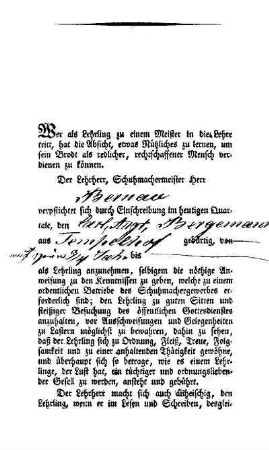 Wer als Lehrling zu einem Meister in die Lehre
tritt, hat die Absicht, etwas Nützliches zu lernen, um
sein Brodt als redlicher, rechtschaffener Mensch ver-
dienen zu können.
Der Lehrherr, Schuhmachermeister Herr
Bernau
verpflichtet sich durch Einschreibung im heutigen Quar-
tale, den Carl Aug. Bergemann
aus Tempelhof gebürtig, von
bis
als Lehrling anzunehmen, selbigem die nöthige An-
weisung zu den Kenntnissen zu geben, welche zu einem
ordentlichen Betriebe des Schuhmachergewerbes er-
forderlich sind; den Lehrling zu guten Sitten und
fleißiger Besuchung des öffentlichen Gottesdienstes
anzuhalten, vor Ausschweifungen und Gelegenheiten
zu Lastern möglichst zu bewahren, dahin zu sehen,
daß der Lehrling sich zu Ordnung, Fleiß, Treue, Folg-
samkeit und zu einer anhaltenden Thätigkeit gewöhne,
und überhaupt sich so betrage, wie es einem Lehr-
linge, der Lust hat, ein tüchtiger und ordnungslieben-
der Gesell zu werden, ansteht und gebührt.
Der Lehrherr macht sich auch anheischig, den
Lehrling, wenn er im Lesen und Schreiben, desglei-